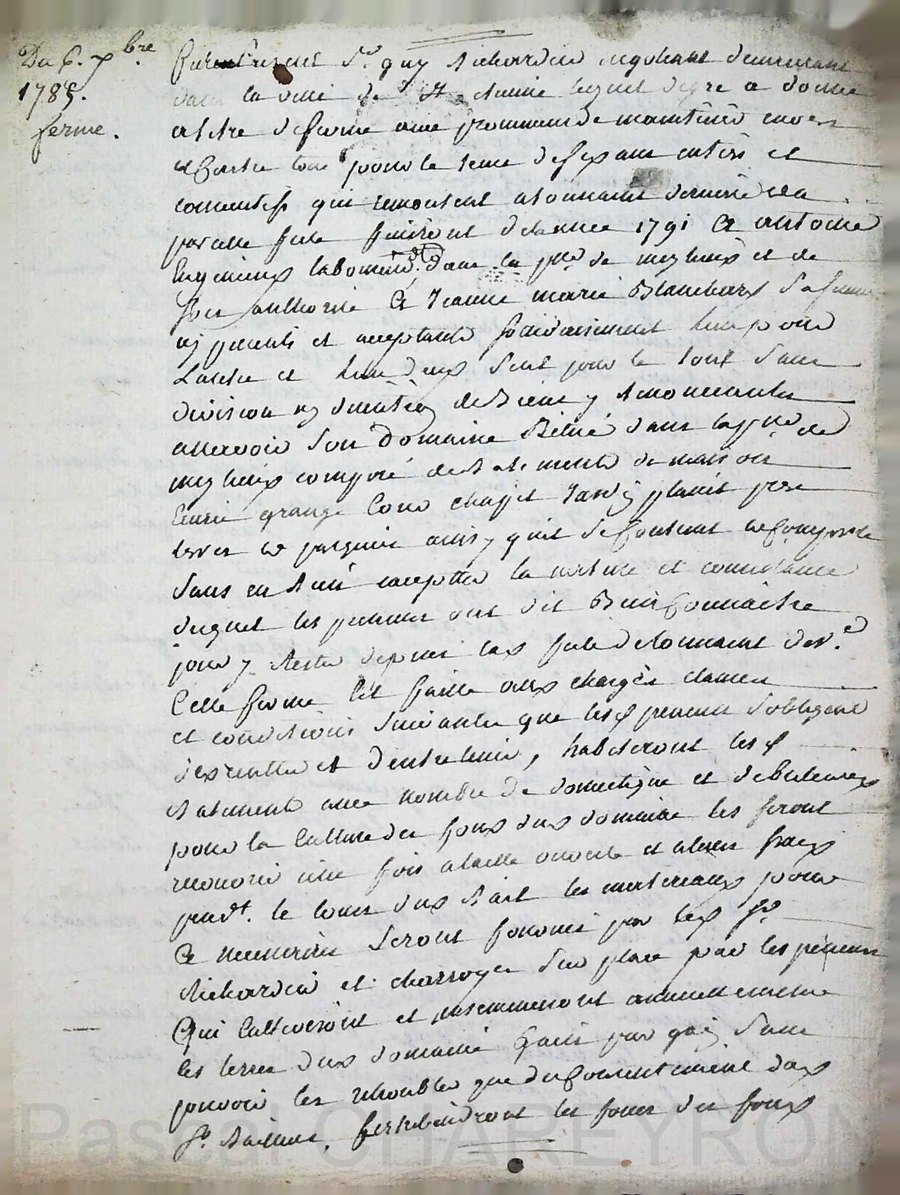 Du 6. xbre
1785.
ferme.
furent présent Sr. guy Richardin négotiant demeurant
dans la ville de St. lequel de gré a donné
a titre de ferme avec promesse de maintenir envers
et Contre tous pour le tems de six ans entiers et
consecutifs qui remontent a toussaint dernière et a
pareille fete finiront de l'année 1791 a antoine
laboureur dans la psse. de et de
Son authorité a Jeanne marie Blanchard Sa femme
icy presents et acceptants solidairement l'un pour
L'autre et l'un deux Seul pour le tout Sans
division ny de Biens y Renonçants
assavoir Son Domaine Situé dans la psse. de
composé de Batiments de maison
Ecurie grange Cour chapit Jardin plants prés
terres et pasquier ainsy qu'il Se Contient et Comporte
Sans en Rien excepter la nature et consistance
duquel les preneurs ont dit Bien Connaitre
pour y Rester depuis lad. fete de toussaint der.e
Cette ferme Est faitte aux charges clauses
et conditions Suivantes que lesd. preneurs S'obligent
d'executter et d'entretenir, habiteront lesd.
Batiments avec nombre de domestique et de Bestiaux
pour la Culture des fonds dud. domaine les feront
recouvrir une fois a taille ouverte et a leurs frais
pendt. le cours dud. Bail les materiaux pour
Ce necessaires Seront fournis par led. Sr.
Richardin et charroyer Sur place par les preneurs
Qui Cultiveront et ensemenceront annuellement
les terres dud. domaine Sans
pouvoir les rétoubler que du Consentement dud.
Sr. Bailleur. Entretiendront les fonds
Pascal CHAREYRON